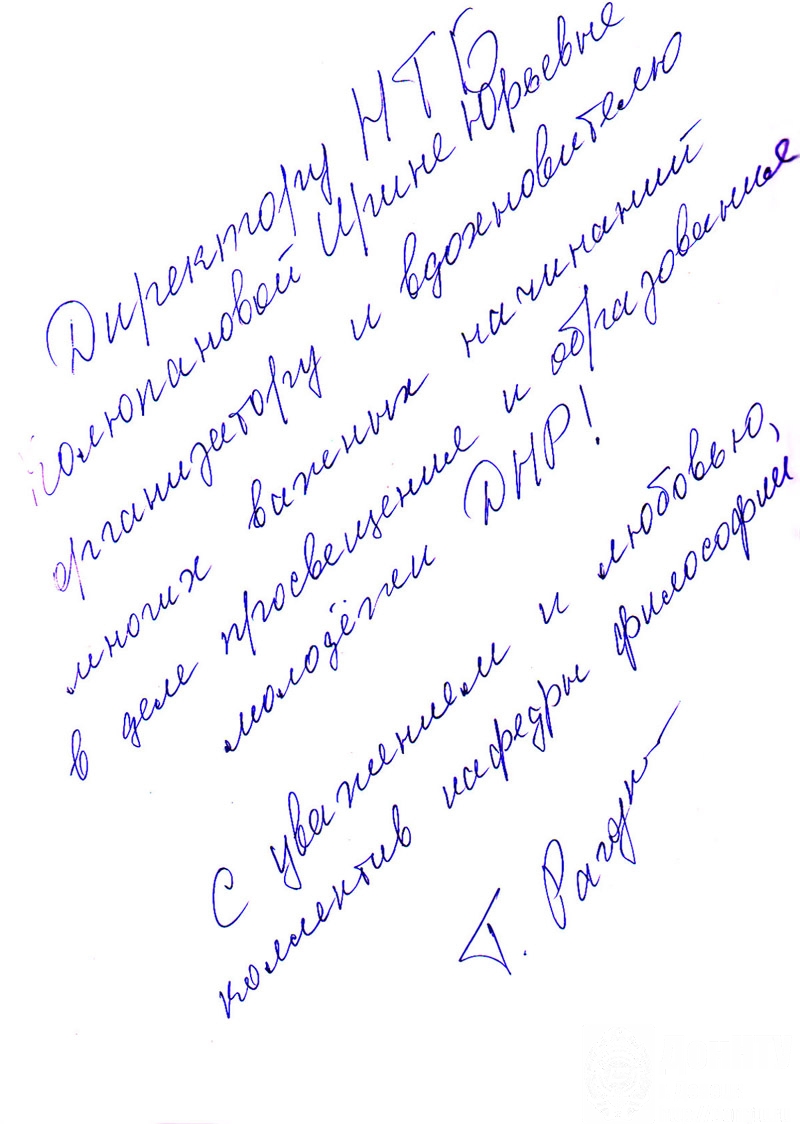 Директору НТБ
Колюпановой Ирине Юрьевне
организатору и вдохновителю
многих важных начинаний
в деле просвещения и образования
молодёжи ДНР!
С уважением и любовью,
коллектив кафедры философии
Т. Рагози